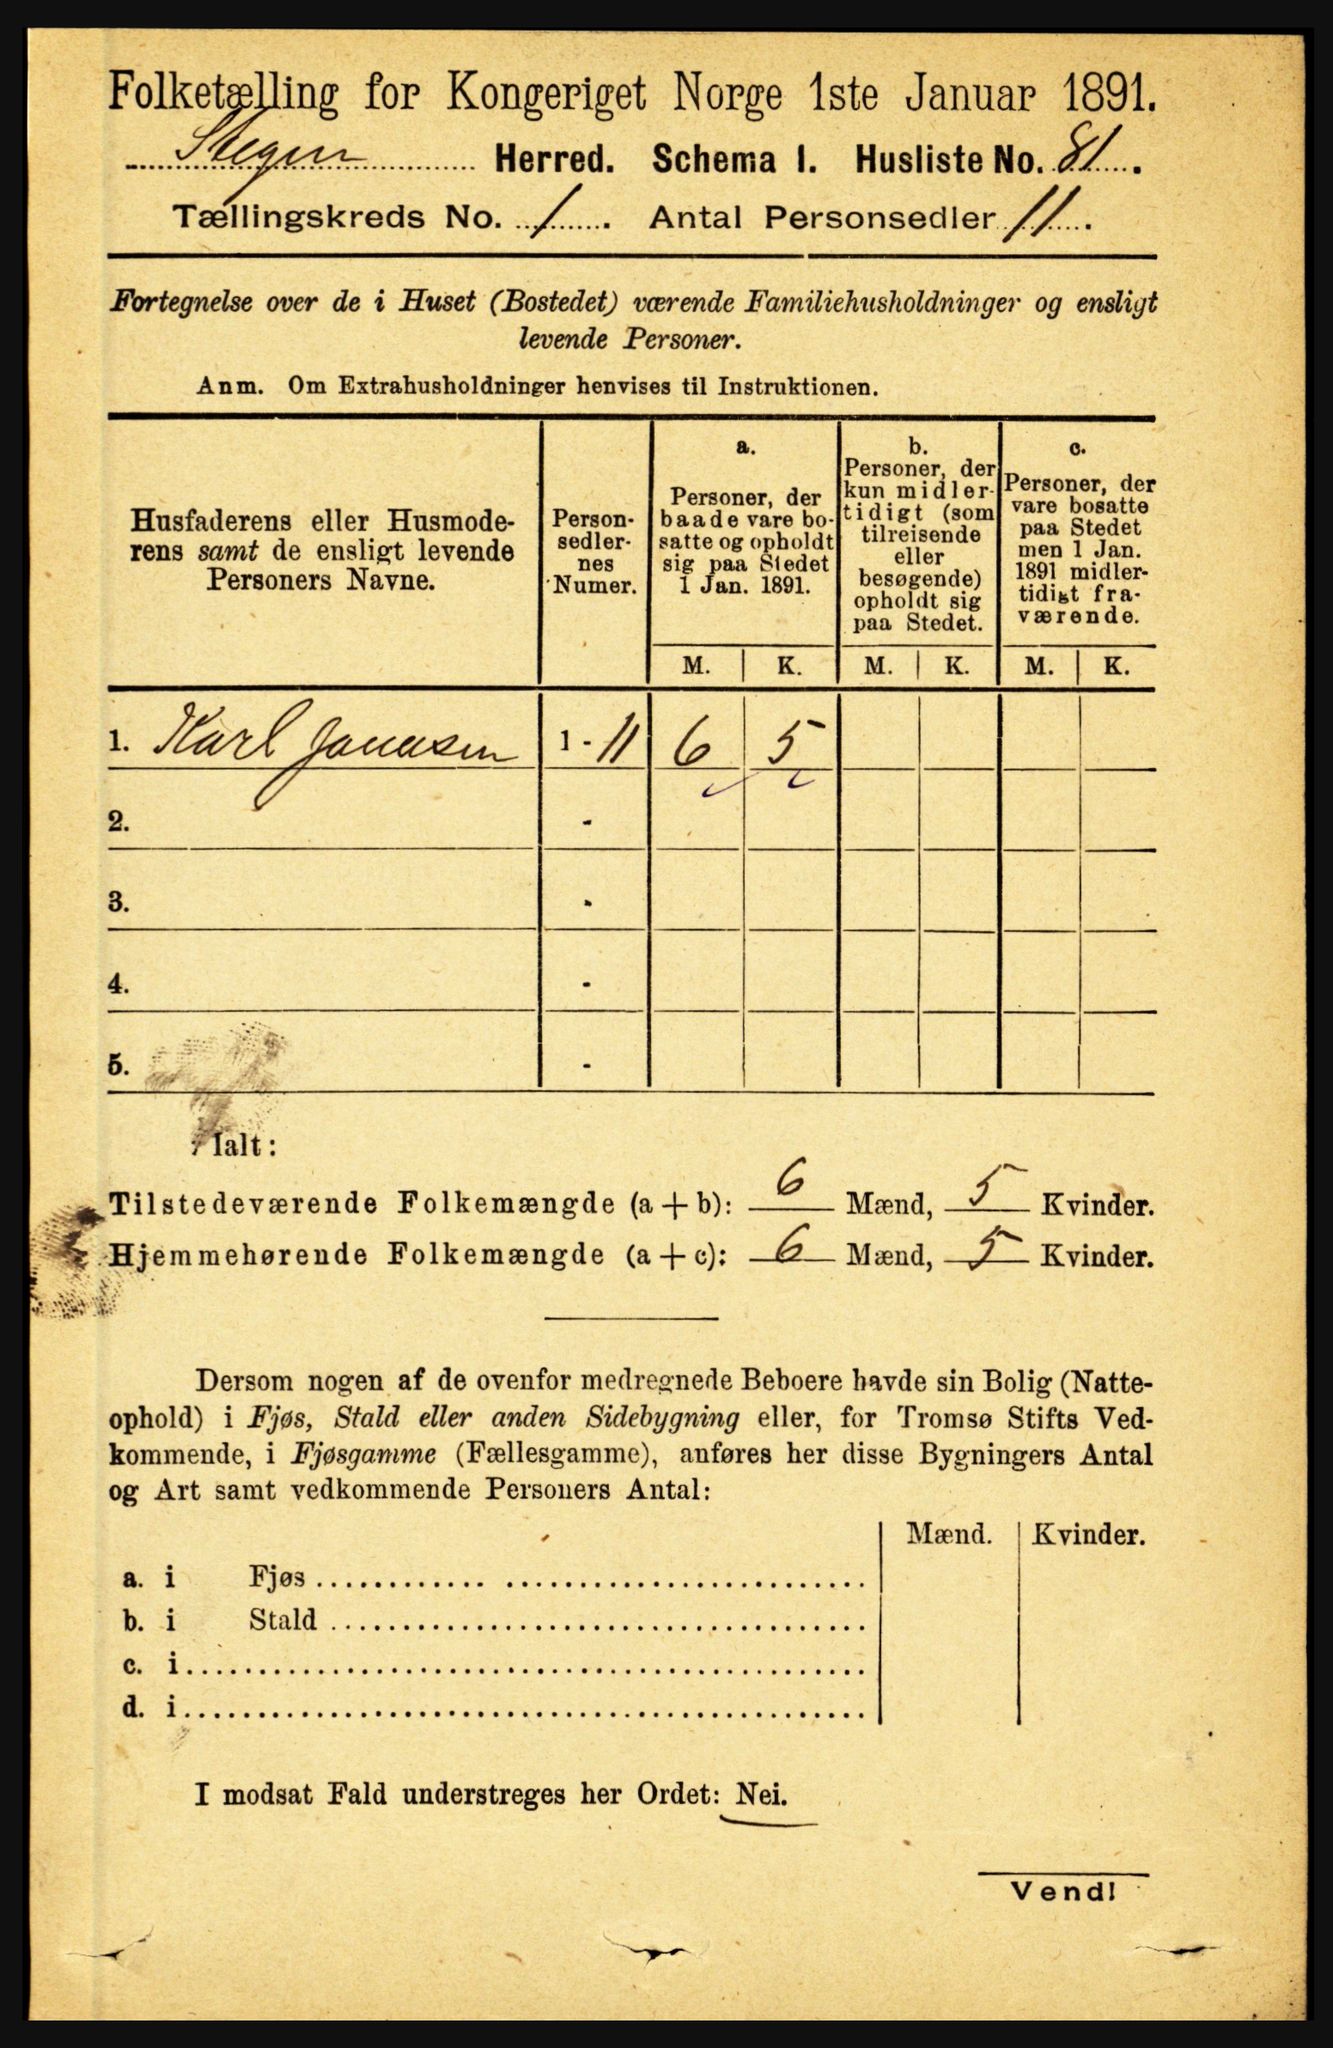 Folketælling for Kongeriget Norge 1ste Januar 1891.
Stegen Herred. Schema I. Husliste No. 81.
Tællingskreds No. 1. Antal Personsedler 11.
Fortegnelse over de i Huset (Bostedet) værende Familiehusholdninger og ensligt
levende Personer.
Anm. Om Extrahusholdninger henvises til Instruktionen.
Husfaderens eller Husmode-
rens samt de ensligt levende
Personers Navne.
Person-
sedler-
nes
Numer.
a.
Personer, der
baade vare bo-
satte og opholdt
sig paa Stedet
1 Jan. 1891.
b.
Personer, der
kun midler-
tidigt (som
tilreisende
eller
besøgende)
opholdt sig
paa Stedet.
c.
Personer, der
vare bosatte
paa Stedet
men 1 Jan.
1891 midler-
tidigt fra-
værende.
M. K. M. K. M. K.
1. Karl Jonassen 1 - 11 6 5
2. -
3. -
4. -
5. -
Ialt:
Tilstedeværende Folkemængde (a + b): 6 Mænd, 5 Kvinder.
Hjemmehørende Folkemængde (a + c): 6 Mænd, 5 Kvinder.
Dersom nogen af de ovenfor medregnede Beboere havde sin Bolig (Natte-
ophold) i Fjøs, Stald eller anden Sidebygning eller, for Tromsø Stifts Ved-
kommende, i Fjøsgamme (Fællesgamme), anføres her disse Bygningers Antal
og Art samt vedkommende Personers Antal:
Mænd. Kvinder.
a. i Fjøs
b. i Stald
c. i
d. i
I modsat Fald understreges her Ordet: Nei.
Vend!